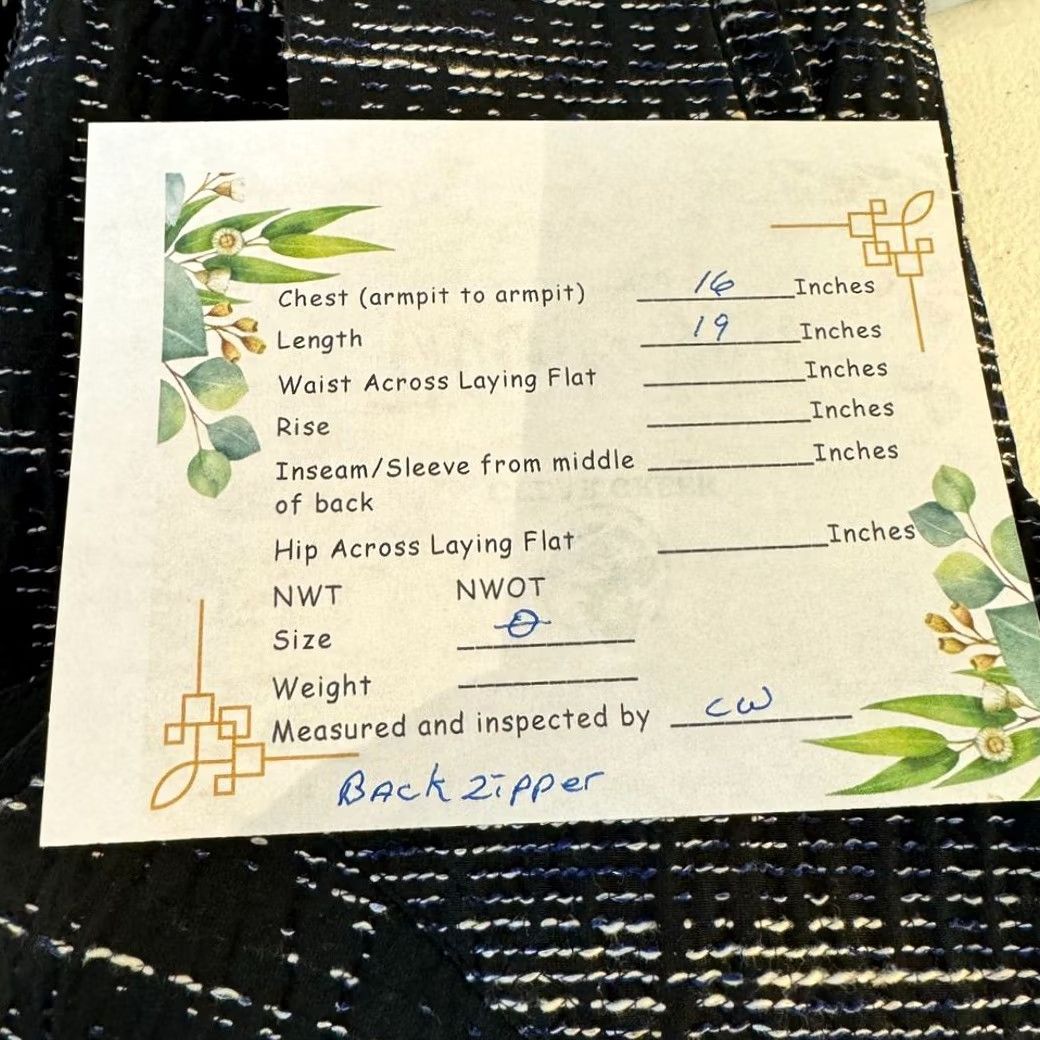 Chest (armpit to armpit) 16 Inches
Length 19 Inches
Waist Across Laying Flat ________ Inches
Rise ________ Inches
Inseam/Sleeve from middle ________ Inches
of back
Hip Across Laying Flat ________ Inches
NWT NWOT
Size 0
Weight ________
Measured and inspected by CW
BACK ZIPPER